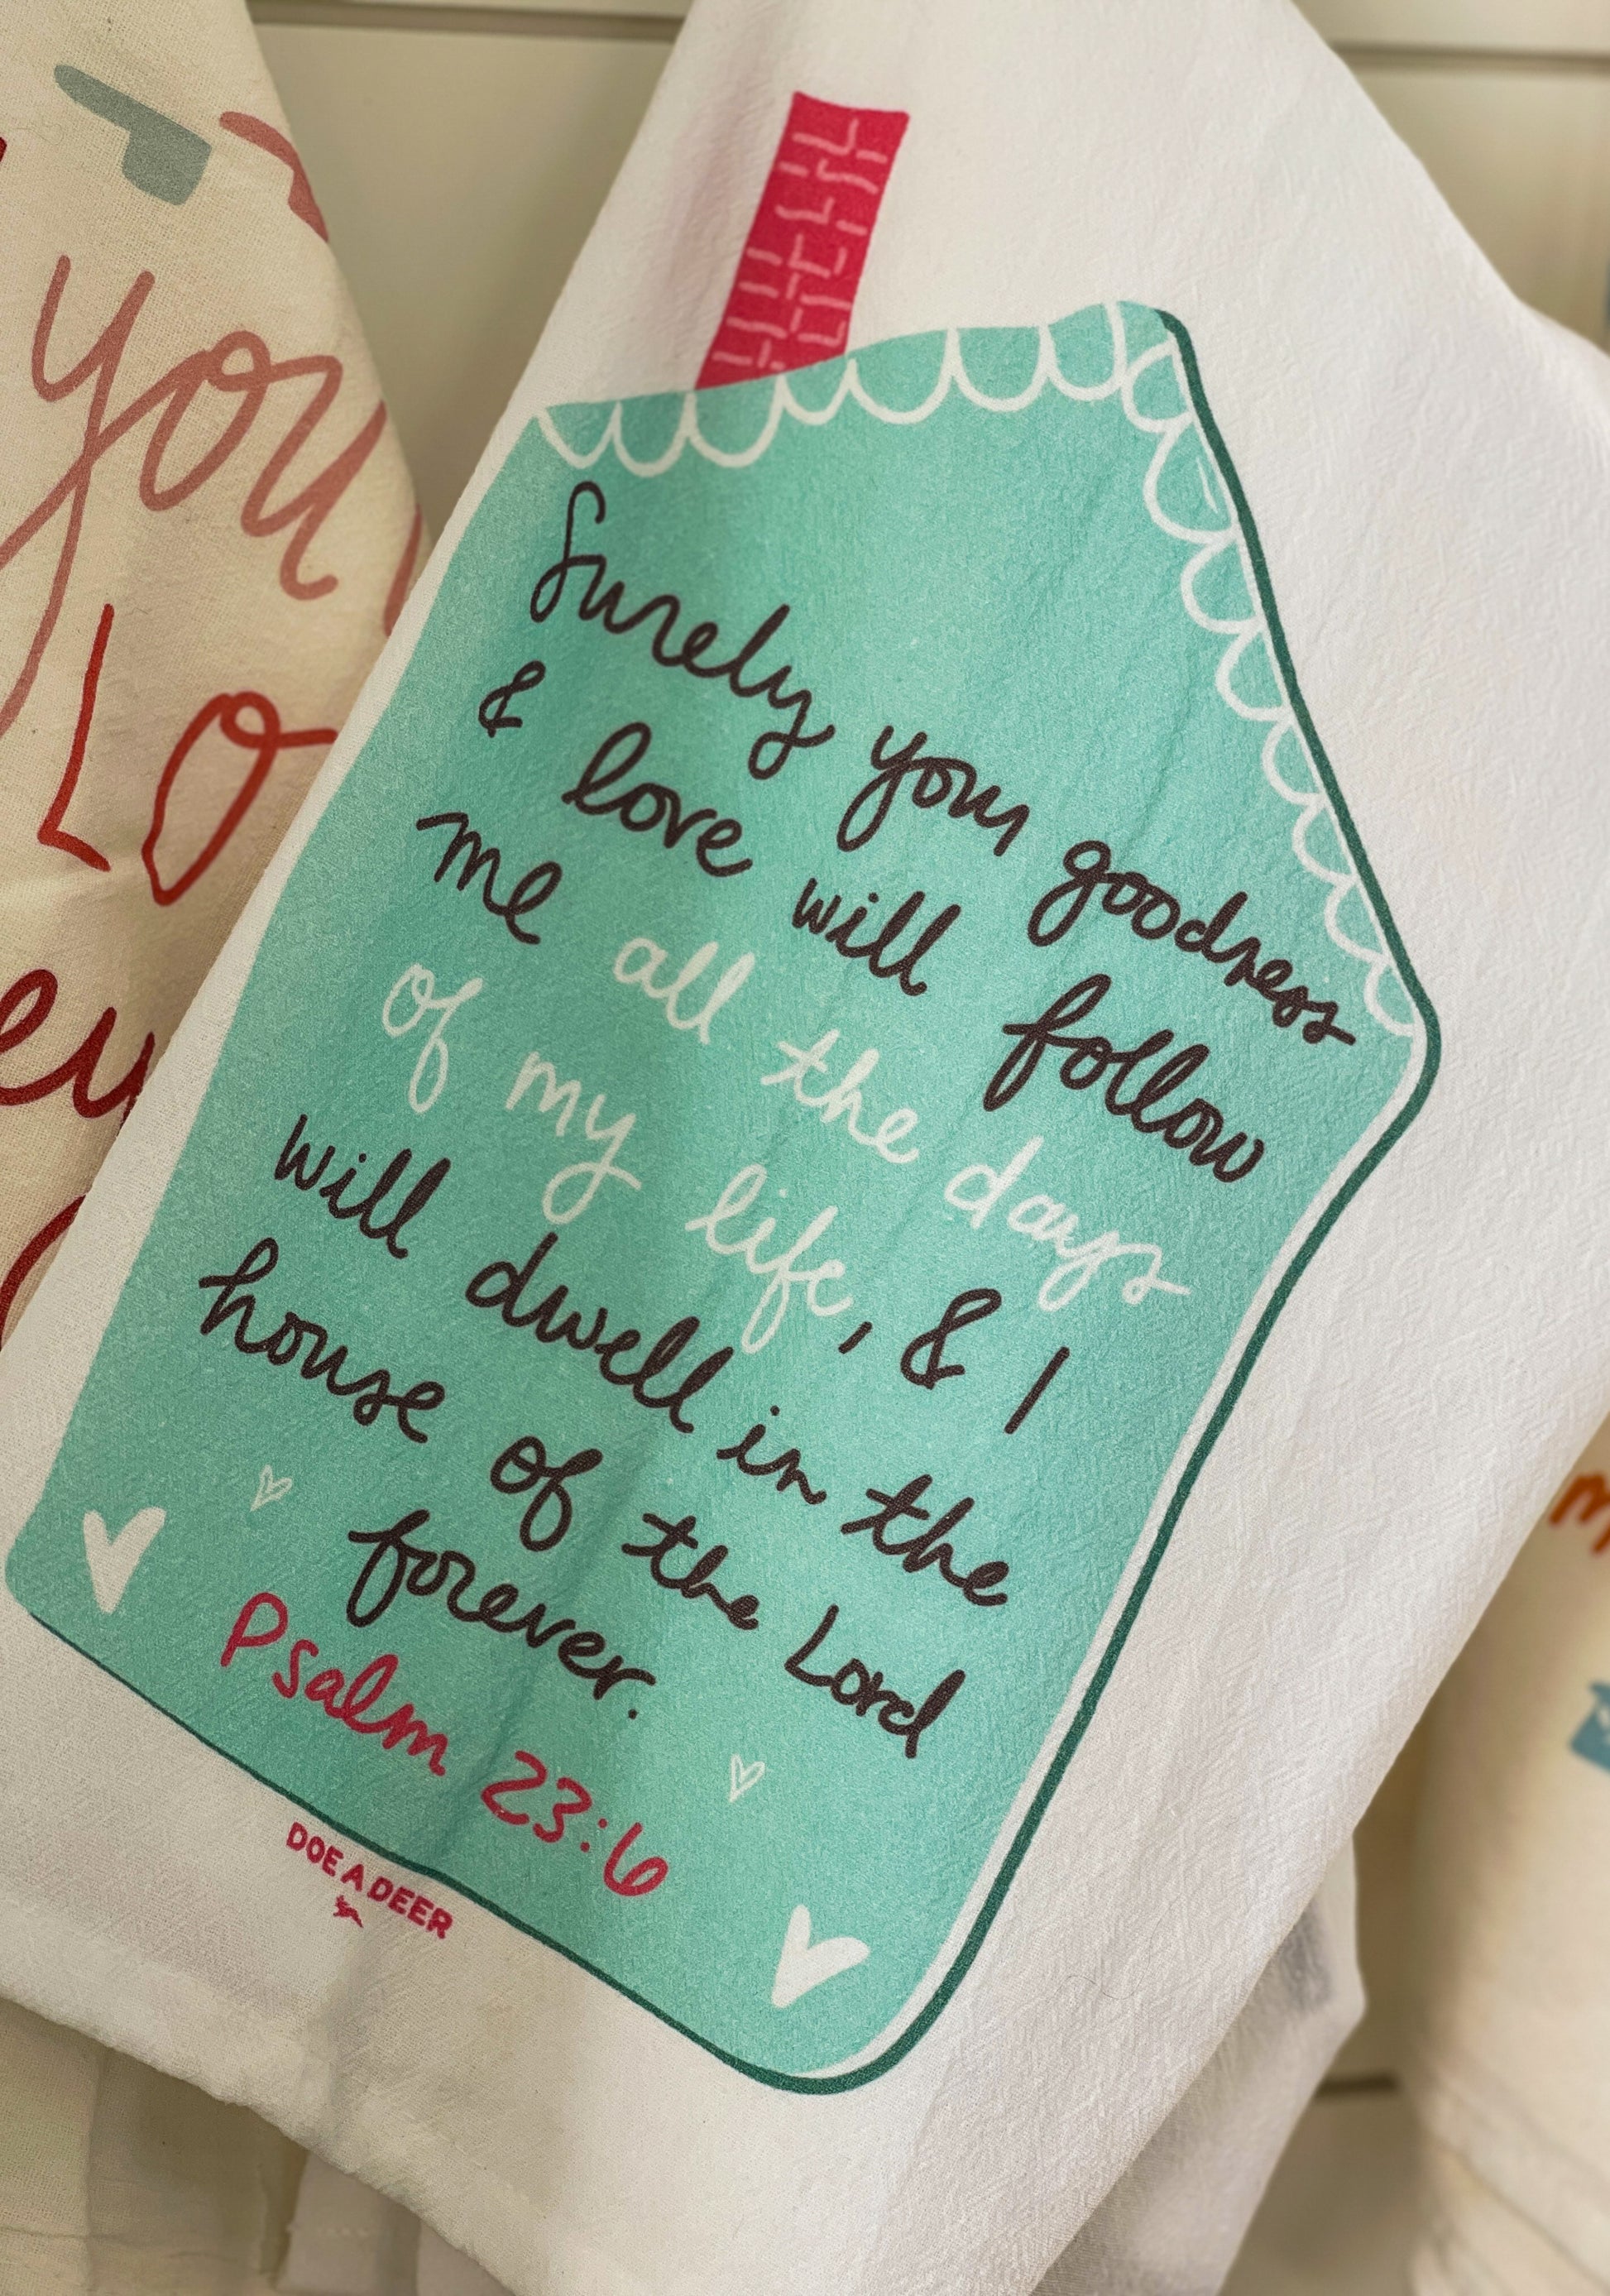 you
LO
Surely your goodness
& love will follow
me all the days
of my life, & I
will dwell in the
house of the Lord
forever.
Psalm 23:6
DOE A DEER